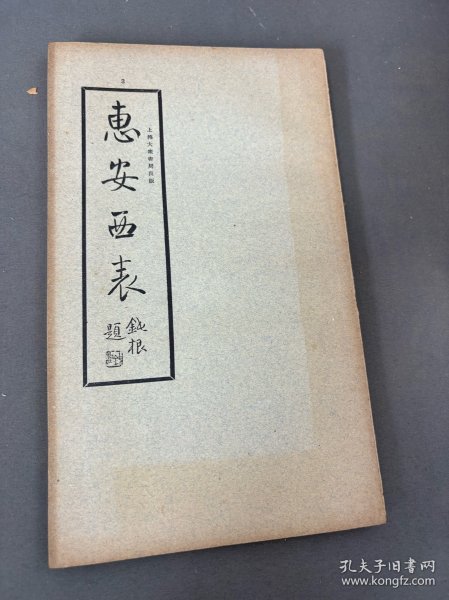 2
惠安西表
上海大众书局出版
鈍根
題
孔夫子旧书网
www.kongfz.com